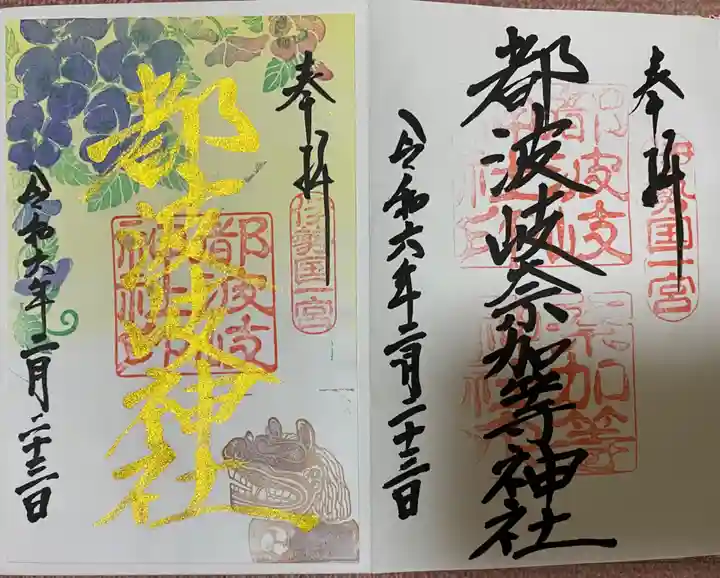 奉拝
伊勢国一宮
都波岐奈加等神社
都波岐神社印
奈加等神社印
令和六年二月二十三日
奉拝
伊勢国一宮
都波岐神社
都波岐神社印
令和六年二月二十三日